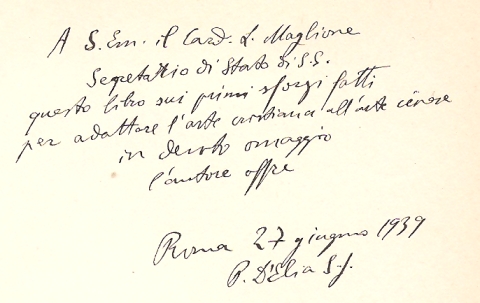 A S. Em. il Card. L. Maglione
Segretario di Stato di S.S.
questo libro sui primi sforzi fatti
per adattare l'arte cristiana all'arte cinese
in devoto omaggio
l'autore offre
Roma 27 giugno 1939
P. D'Elia S.J.